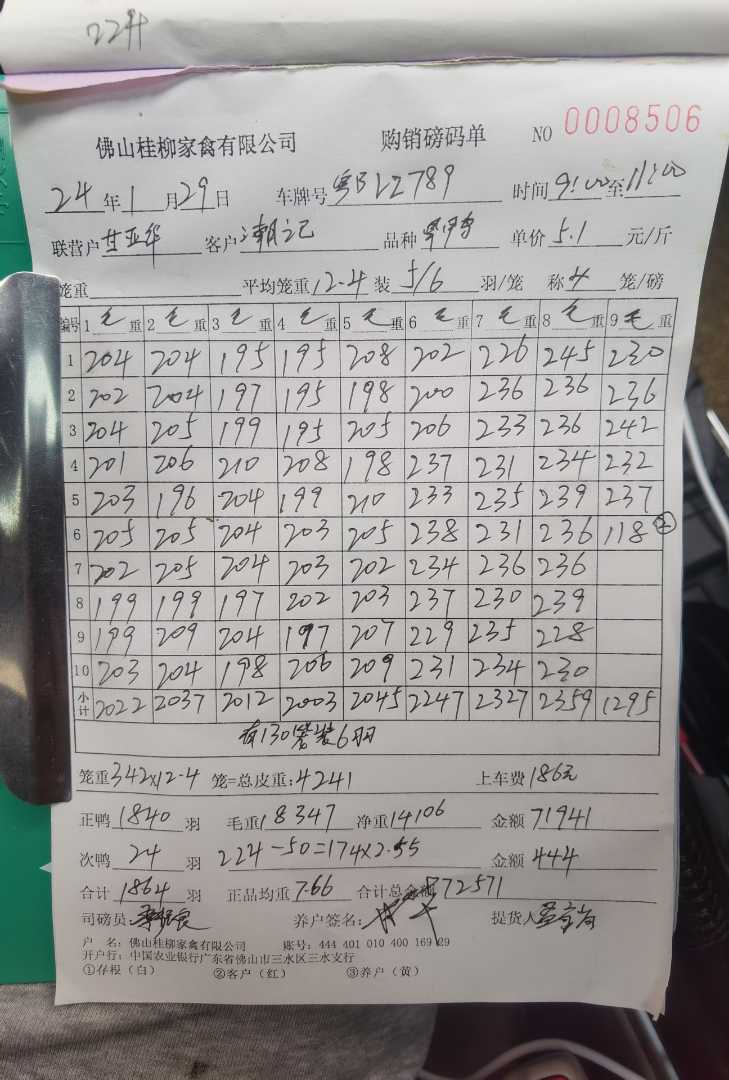 224
佛山桂柳家禽有限公司 购销磅码单 NO 0008506
24年1月29日 车牌号 粤B22789 时间9:00至11:00
联营户 甘亚华 客户 潮记 品种 单价 5.1 元/斤
笼重 平均笼重12.4 装 5/6 羽/笼 称 4 笼/磅
编号 1 毛重 2 毛重 3 毛重 4 毛重 5 毛重 6 毛重 7 毛重 8 毛重 9 毛重
1 204 204 195 195 208 202 226 245 230
2 202 204 197 195 198 200 236 236 236
3 204 205 199 195 205 206 233 236 242
4 201 206 210 208 198 237 231 234 232
5 203 196 204 199 210 233 235 239 237
6 205 205 204 203 205 238 231 236 118 ②
7 202 205 204 203 202 234 236 236
8 199 199 197 202 203 237 230 239
9 199 209 204 197 207 229 235 228
10 203 204 198 206 209 231 234 230
小计 2022 2037 2012 2003 2045 2247 2327 2359 1295
有130笼装6羽
笼重 342×12.4 笼=总皮重:4241 上车费 186元
正鸭 1840 羽 毛重 18347 净重 14106 金额 71941
次鸭 24 羽 224-50=174×2.55 金额 444
合计 1864 羽 正品均重 7.66 合计总金额 ¥72571
司磅员: 养户签名: 提货人
户 名: 佛山桂柳家禽有限公司 账号: 444 401 010 400 169 29
开户行: 中国农业银行广东省佛山市三水区三水支行
①存根(白) ②客户(红) ③养户(黄)